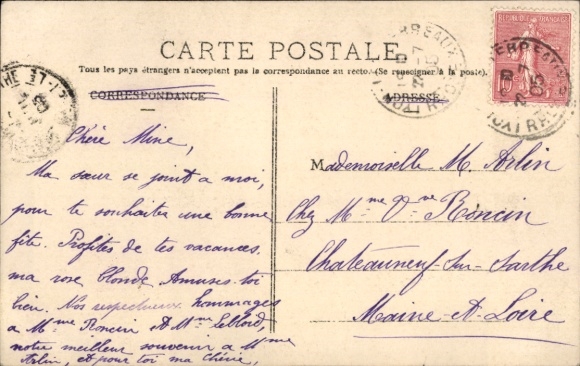 CARTE POSTALE
Tous les pays étrangers n'acceptent pas la correspondance au recto. (Se renseigner à la poste).
CORRESPONDANCE
ADRESSE
RÉPUBLIQUE FRANÇAISE
10
Chère Mine,
Ma sœur se joint a moi,
pour te souhaiter une bonne
fête. Profites de tes vacances,
ma rose blonde. Amuses-toi
bien. Nos respectueux hommages
a Mme Roncin et Mme Leblond,
notre meilleur souvenir a Mme
Arlin, et pour toi ma Chérie,
Mademoiselle M. Arlin
Chez Mme Vve Roncin
Chateauneuf-sur-Sarthe
Maine-et-Loire